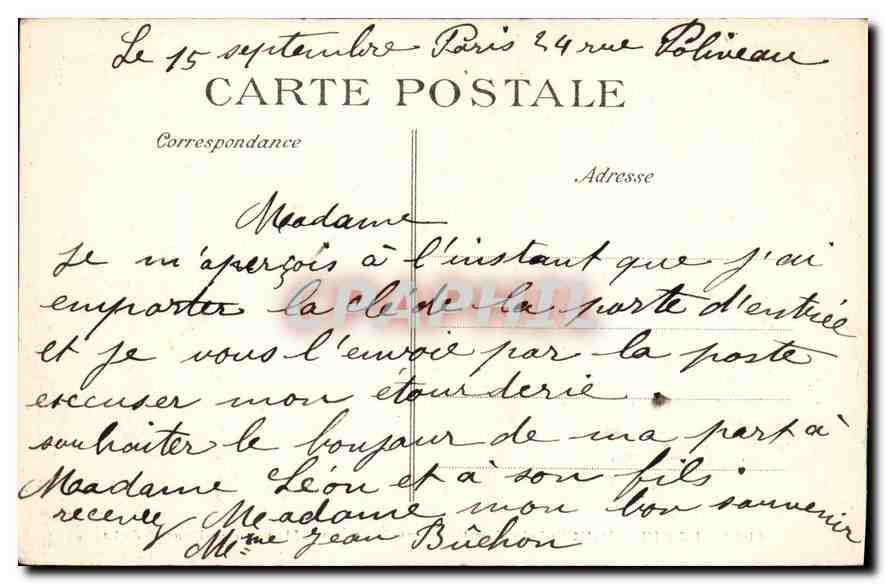 Le 15 septembre Paris 24 rue Poliveau
CARTE POSTALE
Correspondance
Adresse
Madame
Je m'aperçois à l'instant que j'ai
emporter la clé de la porte d'entrée
et je vous l'envoie par la poste
excuser mon étourderie.
souhaiter le bonjour de ma part à
Madame Léon et à son fils.
recevez Madame mon bon souvenir
Mme Jean Bûchon
CPAPHIL